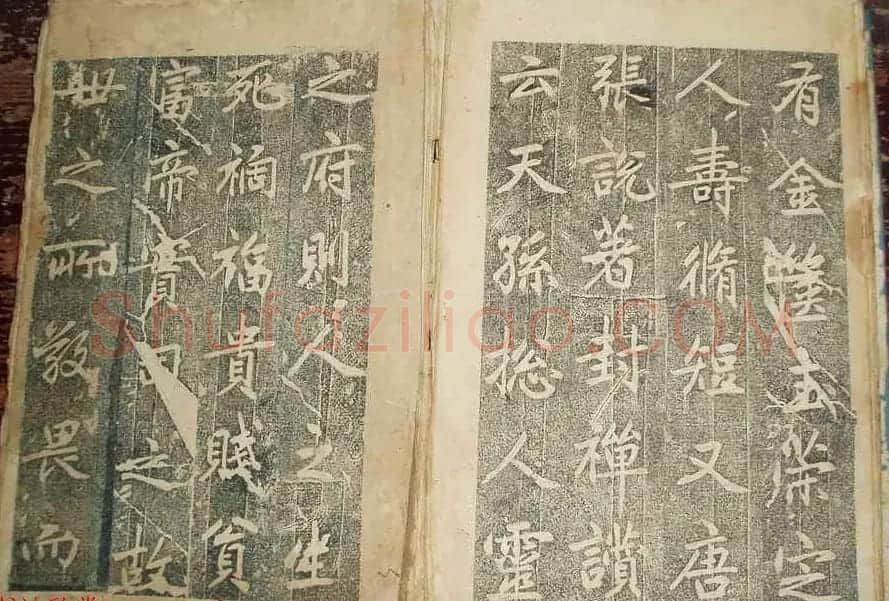 有金篋玉策定
人壽脩短又唐
張説著封禪讃
云天孫摠人靈
之府則人之生
死禍福貴賤貧
富帝實司之故
世之所敬畏而
Shufaziliao.COM